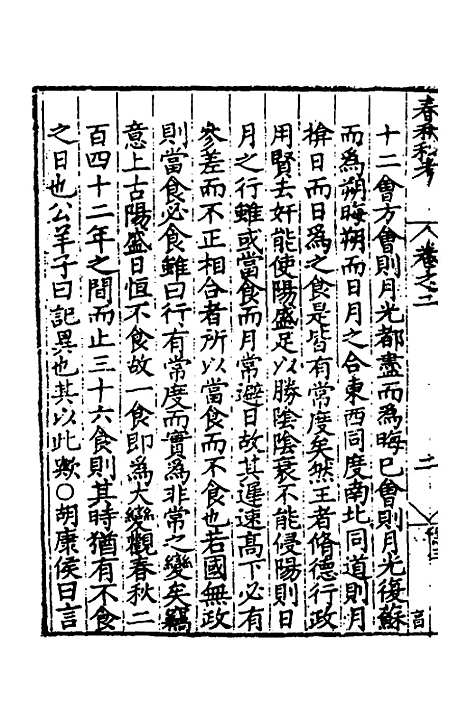 春秋私考 卷之二 二
十二會方會則月光都盡而爲晦已會則月光復蘇
而爲朔晦朔而日月之合東西同度南北同道則月
揜日而日爲之食是皆有常度矣然王者脩德行政
用賢去奸能使陽盛足以勝陰陰衰不能侵陽則日
月之行雖或當食而月常避日故其遲速高下必有
參差而不正相合者所以當食而不食也若國無政
則當食必食雖曰行有常度而實爲非常之變矣竊
意上古陽盛日恒不食故一食即爲大變觀春秋二
百四十二年之間而止三十六食則其時猶有不食
之日也公羊子曰記異也其以此歟○胡康侯曰言